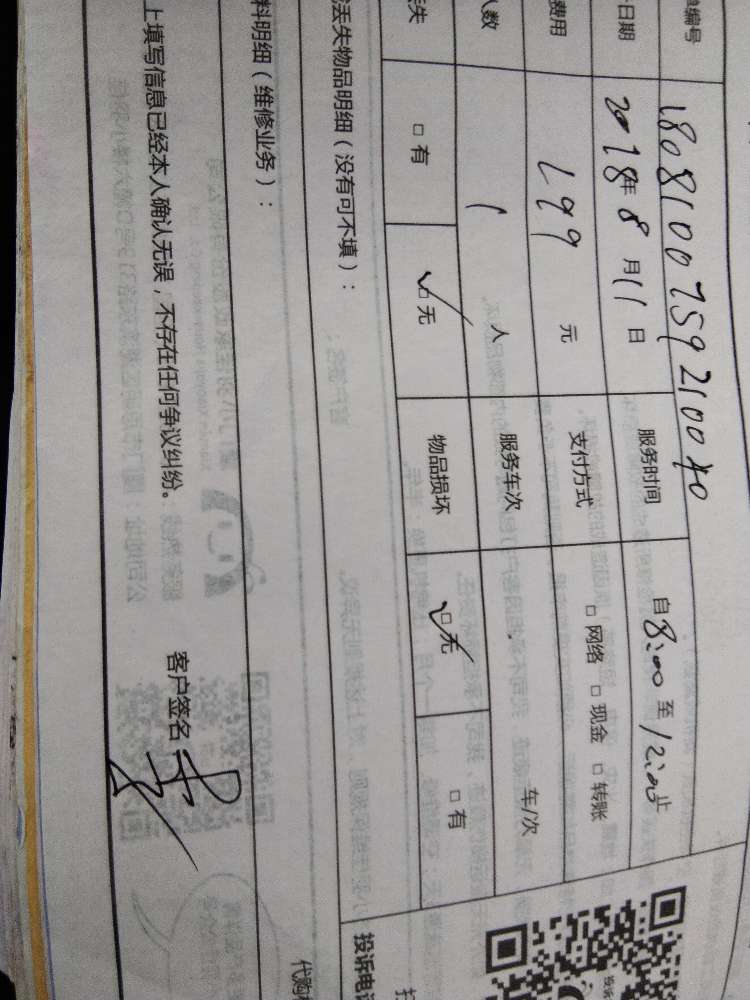 编号 1808100759210040
日期 2018年8月11日 服务时间 自8:00至12:00止
费用 199 元 支付方式 □网络 □现金 □转账
人数 1 人 服务车次 车/次
丢失 □有 ☑无 物品损坏 ☑无 □有
丢失物品明细（没有可不填）：
料明细（维修业务）：
上填写信息已经本人确认无误，不存在任何争议纠纷。
客户签名
投诉电
代购